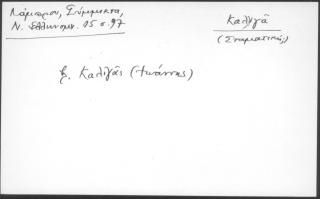 Λάμπρου, Σύμμικτα,
Ν. Ελληνομν. 15 σ. 97
Καλ(λ)ιγᾶ
(Σταματικώ;)
β. Καλιγᾶς (Ἰωάννης)